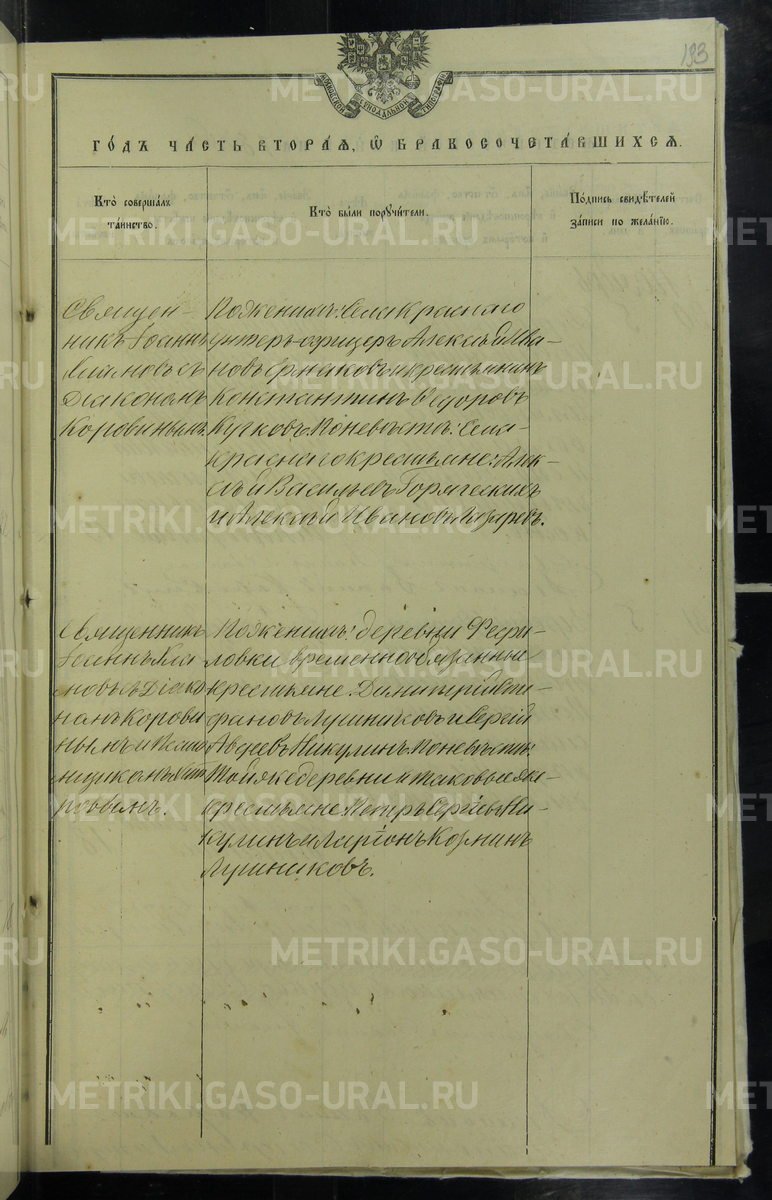 133
МОСКОВСКОЙ СѴНОДАЛЬНОЙ ТИПОГРАФІИ
ГО́ДЪ ЧА́СТЬ ВТОРА́Я, Ѡ҆ БРАКОСОЧЕТА́ВШИХСЯ.
Кто̀ соверша́лъ
та́инство.
Кто̀ бы́ли порꙋчи́тели.
По́дпись свидѣ́телей
за́писи по жела́нію.
Священ-
никъ Іоаннъ
съ
Діакономъ
Коровинымъ
По женихѣ: Села Краснаго
унтеръ офицеръ Алексѣй Ива-
новъ и крестьянинъ
Константинъ Ѳедоровъ
Кутковъ По невѣстѣ: Села
Краснаго крестьяне: Алек-
сѣй Васильевъ
и Алексѣй Ивановъ
Священникъ
Іоаннъ
съ Діако
номъ Корови
нымъ и
По женихѣ: деревни
временнообязанные
крестьяне: Димитрій
Лушниковъ и Сергій
Авдеевъ Никулинъ По невѣстѣ:
Той же деревни и таковые же
крестьяне: Петръ Сергѣевъ Ни-
кулинъ и Ларіонъ
Лушниковъ.
METRIKI.GASO-URAL.RU